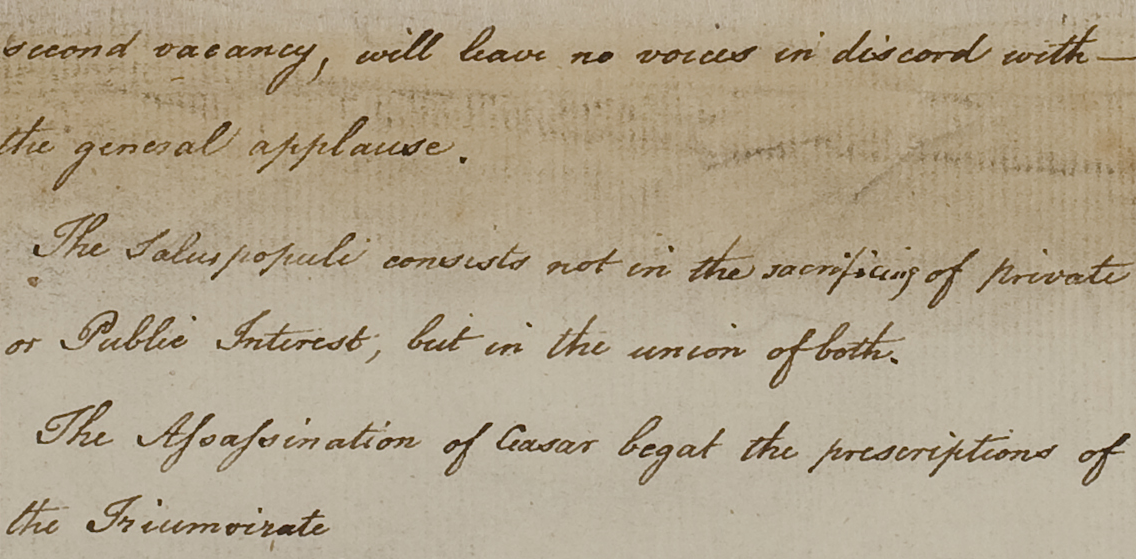 second vacancy, will leave no voices in discord with—
the general applause.
The Salus populi consists not in the sacrificing of private
or Public Interest, but in the union of both.
The Assassination of Ceasar begat the prescriptions of
the Triumvirate